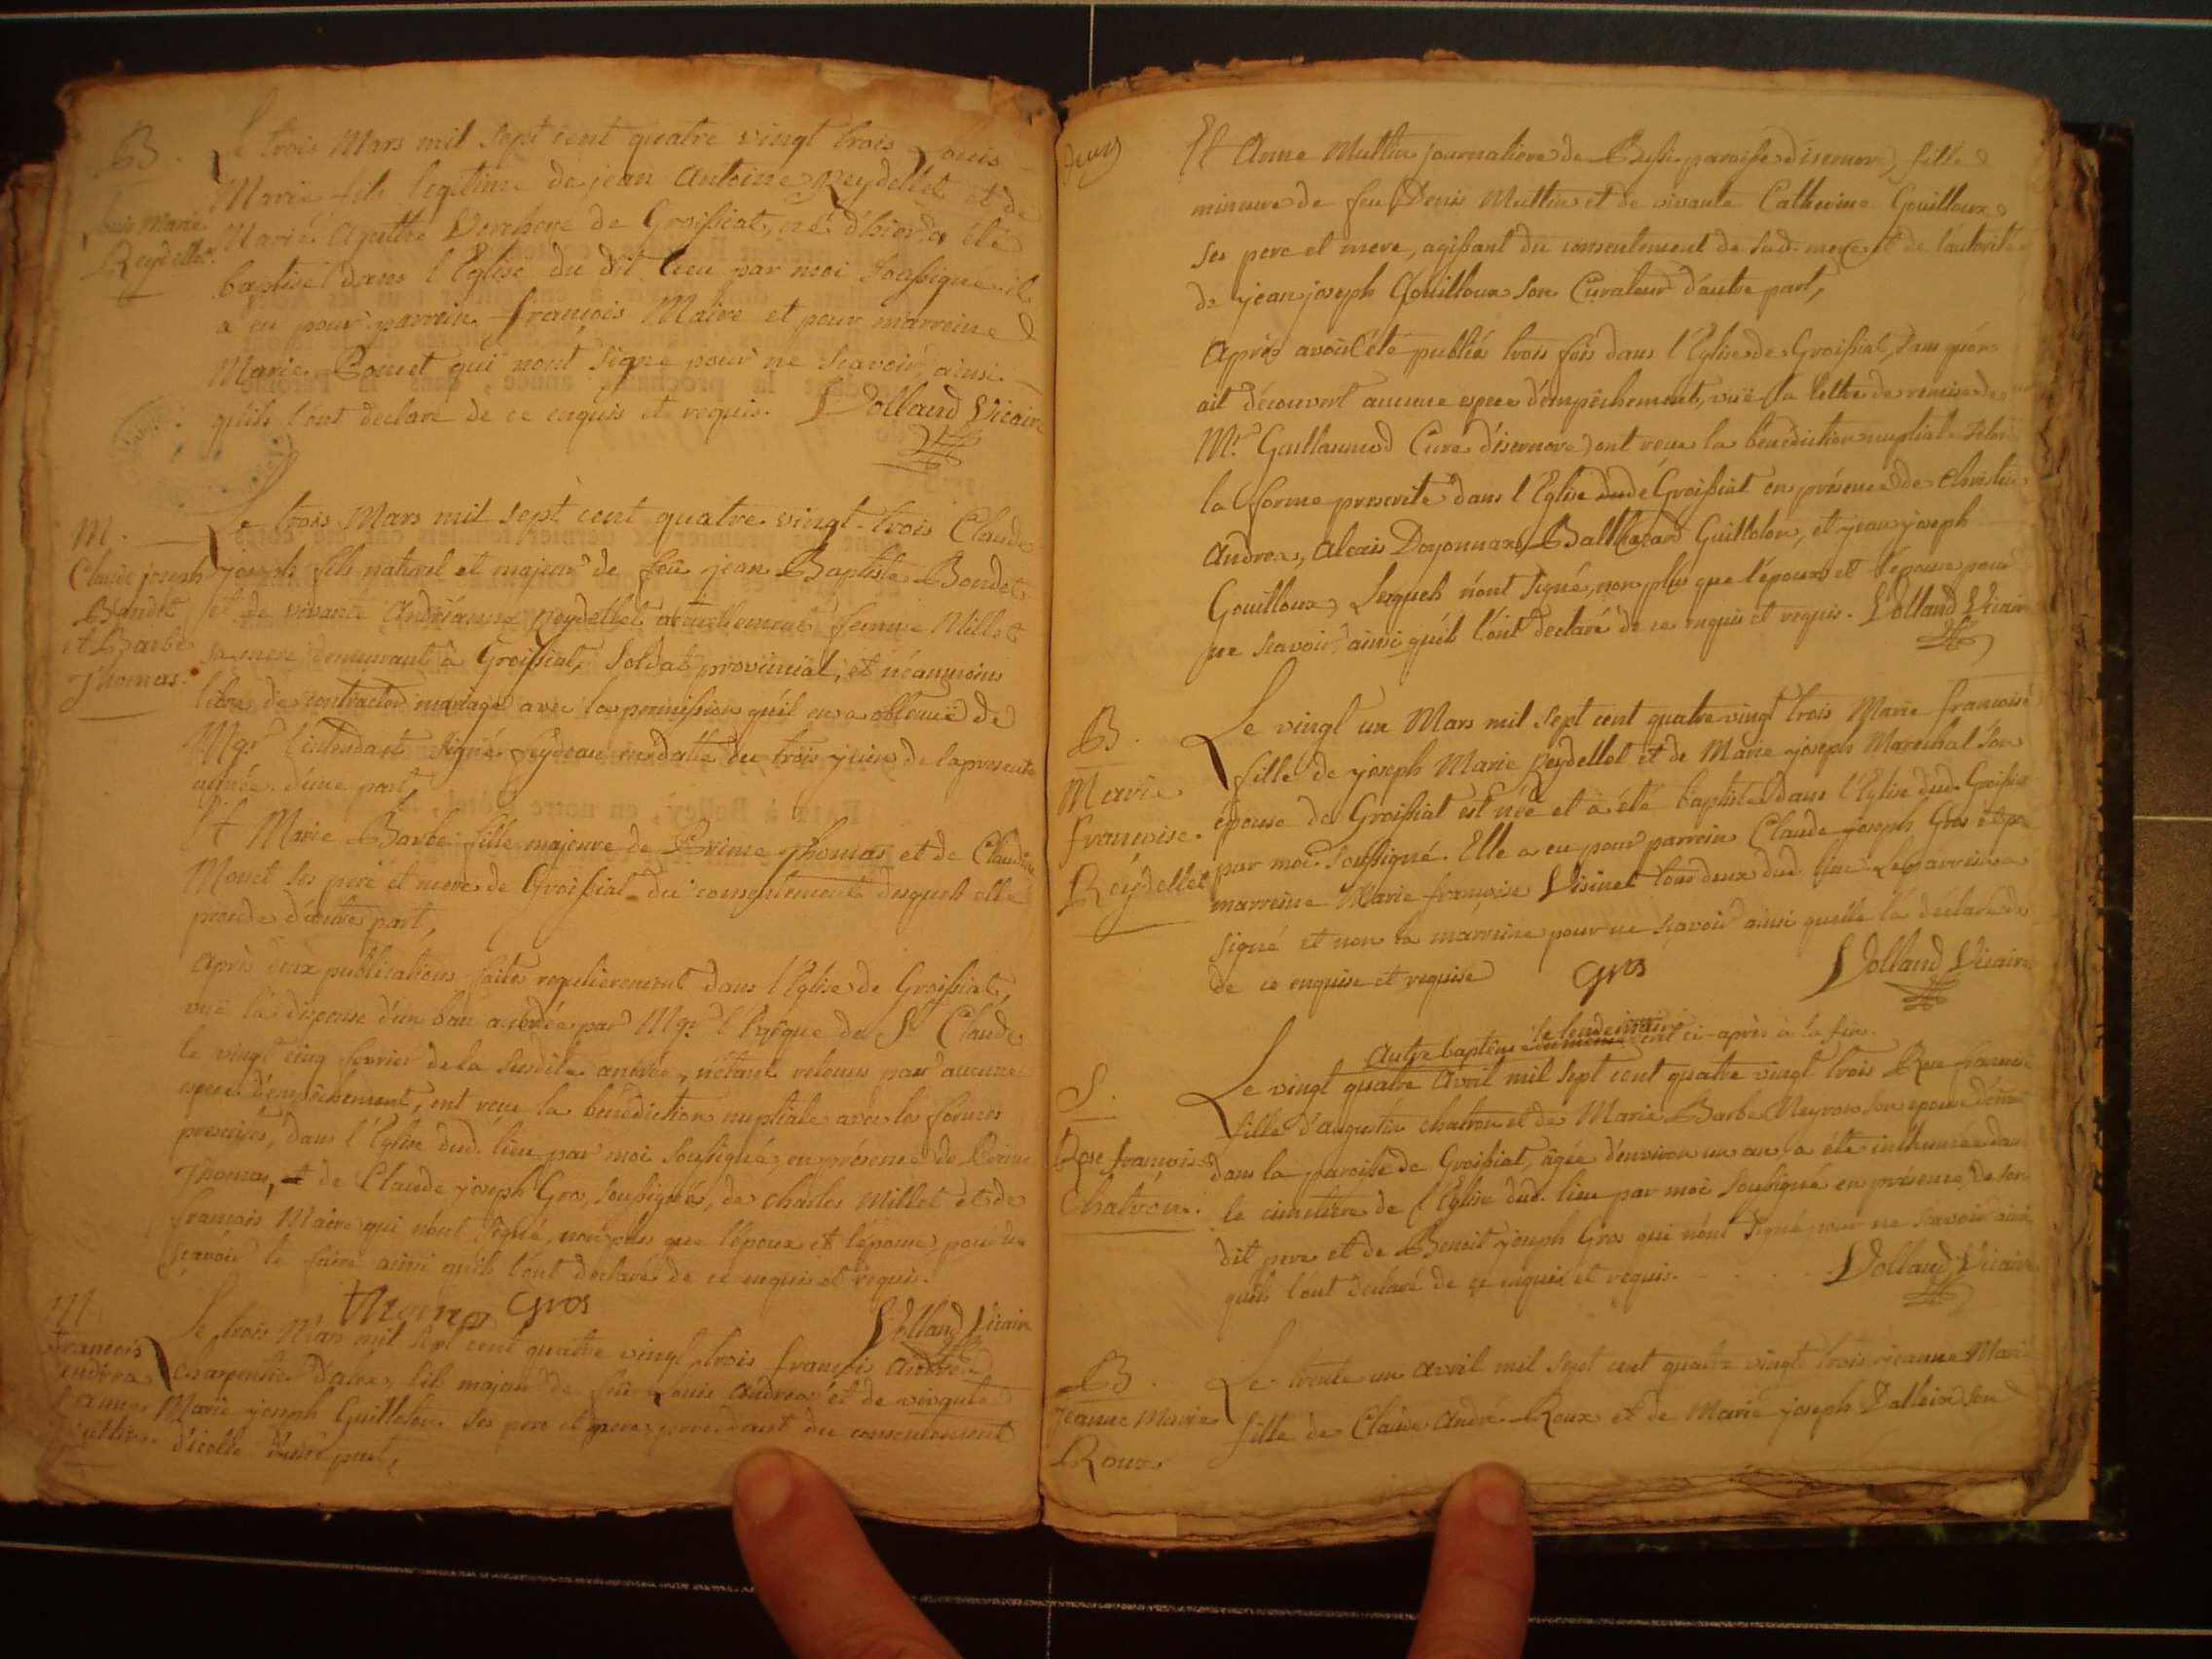 B.
Louis Marie
Reydellet.
Le trois Mars mil sept cent quatre vingt trois Louis
Marie fils legitime de jean Antoine Reydellet et de
Marie Agathe de Groissiat, né d'hier a été
baptisé dans l'Eglise du dit lieu par moi soussigné il
a eu pour parrein françois Maire et pour marreine
Marie Poncet qui n'ont signé pour ne scavoir ainsi
qu'ils l'ont declaré de ce enquis et requis. Volland Vicaire
M.
Claude joseph
Bondet
et Barbe
Thomas.
Le trois Mars mil sept cent quatre vingt-trois Claude
joseph fils naturel et majeur de feu jean Baptiste Bondet
et de vivante Andréanne Reydellet actuellement femme Millet
sa mere demeurant à Groissiat, soldat provincial, et néanmoins
libre de contracter mariage avec la permission qu'il en a obtenuë de
Mgr. l'intendant signé feydeau en datte du trois de la presente
année d'une part,
Et Marie Barbe fille majeure de Prime Thomas et de Claudine
Monet ses pere et mere de Groissiat du consentement desquels elle
procede d'autre part,
Après deux publications faites regulierement dans l'Eglise de Groissiat,
vuë la dispense d'un ban accordée par Mgr. l'Evêque de St Claude
le vingt cinq fevrier de la susdite année, n'étant venu aucune
espece d'empêchement, ont recu la benediction nuptiale avec les formes
prescrites, dans l'Eglise dud. lieu par moi soussigné, en présence de Prime
Thomas, et de Claude joseph Gros, soussignés, de Charles Millet et de
françois Maire qui n'ont signé, non plus que l'époux et l'épouse, pour ne
scavoir le faire ainsi qu'ils l'ont declaré de ce enquis et requis.
thoma Gros Volland Vicaire
M
francois
andrea
& anne
Muttin
Le trois Mars mil sept cent quatre vingt trois françois Andréa
charpentier d'alex, fils majeur de feu Louis Andrea et de vivante
Marie joseph Guilleton ses pere et mere, procedant du consentement
d'icelle d'une part,
deux
Et Anne Muttin journaliere de Bessi paroisse d'isernore, fille
mineure de feu Denis Muttin et de vivante Catherine Gouilloux
ses pere et mere, agissant du consentement de sad. mere et de l'autorité
de jean joseph Gouilloux son Curateur d'autre part,
Après avoir été publiés trois fois dans l'Eglise de Groissiat, sans qu'on
ait découvert aucune espece d'empêchement, vuë la lettre de remise de
Mr. Guillaumod Curé d'isernore, ont recu la bénédiction nuptiale selon
la forme prescrite dans l'Eglise de Groissiat en présence de Christin
Andrea, Alexis Doyonnax, Balthazard Guilloton, et jean joseph
Gouilloux, Lesquels n'ont signé, non plus que l'époux et l'épouse pour
ne scavoir ainsi qu'ils l'ont declaré de ce enquis et requis. Volland Vicaire
B.
Marie
francoise.
Reydellet
Le vingt un Mars mil sept cent quatre vingt trois Marie francoise
fille de joseph Marie Reydellet et de Marie joseph Marechal son
épouse de Groissiat est née et a été baptisée dans l'Eglise dud. Groissiat
par moi soussigné. Elle a eu pour parrein Claude joseph Gros et pr
marreine Marie françoise Visinet tous deux dud. lieu. Le parrein a
signé et non la marreine pour ne scavoir ainsi qu'elle l'a déclaré
de ce enquise et requise Gros Volland Vicaire
Autre baptême le lendemain est ci-après à la fin.
S.
Rose francoise
Chatron.
Le vingt quatre Avril mil sept cent quatre vingt trois Rose francoise
fille d'augustin chatron et de Marie Barbe Neyron son epouse
dans la paroisse de Groissiat, âgée d'environ un an, a été inhumée dans
le cimetiere de l'Eglise dud. lieu par moi soussigné en présence de son
dit pere et de Benoit joseph Gros qui n'ont signé pour ne scavoir ainsi
qu'ils l'ont declaré de ce enquis et requis. Volland Vicaire
B.
Jeanne Marie
Roux.
Le trente un avril mil sept cent quatre vingt trois jeanne Marie
fille de Claude André Roux et de Marie joseph Dalloix son